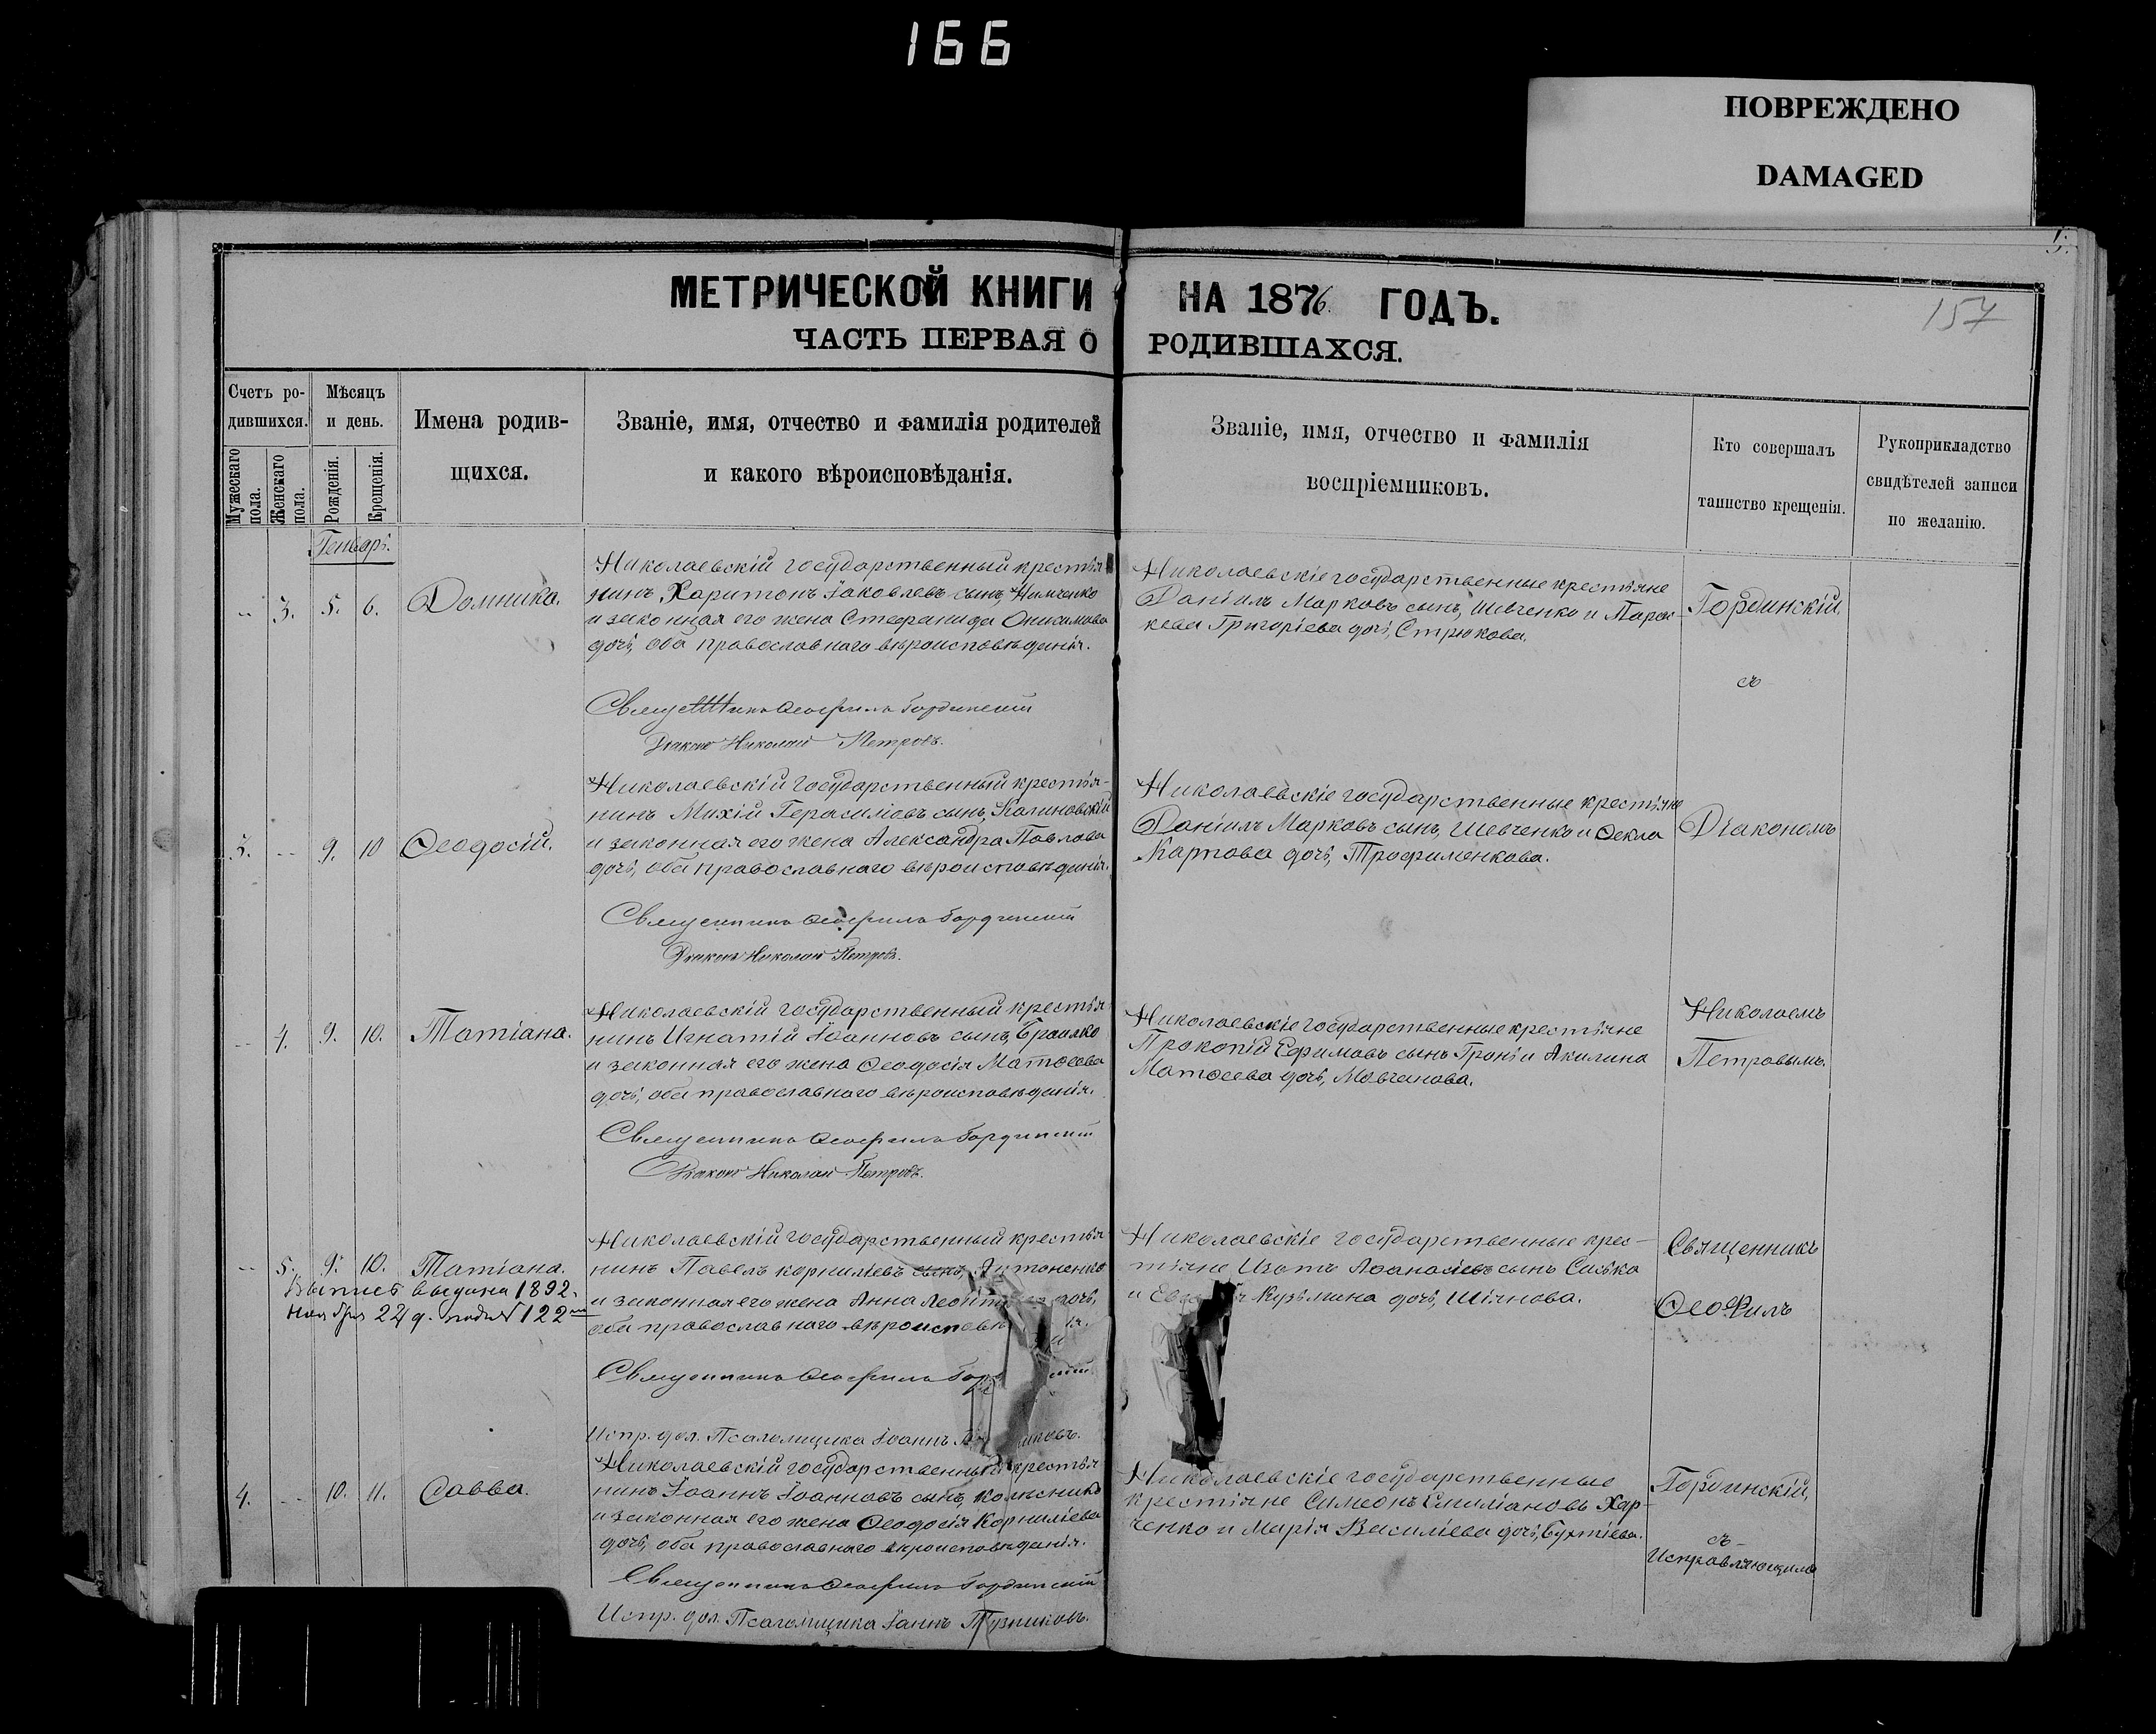 166
ПОВРЕЖДЕНО
DAMAGED
5.
157
МЕТРИЧЕСКОЙ КНИГИ НА 1876 ГОДЪ.
ЧАСТЬ ПЕРВАЯ О РОДИВШАХСЯ.
Счетъ ро-
дившихся.
Мужескаго пола.
Женскаго пола.
Мѣсяцъ
и день.
Рожденія.
Крещенія.
Имена родив-
щихся.
Званіе, имя, отчество и фамилія родителей
и какого вѣроисповѣданія.
Званіе, имя, отчество и фамилія
воспріемниковъ.
Кто совершалъ
таинство крещенія.
Рукоприкладство
свидѣтелей записи
по желанію.
Генварь.
-- 3. 5. 6. Домника.
Николаевскій государственный крестья
нинъ, Харитонъ Іаковлевъ сынъ, Нимченко
и законная его жена Стефанида Онисимова
дочь, оба православнаго вѣроисповѣданія.
Священникъ Ѳеофилъ Гординскій
Діаконъ Николай Петровъ.
Николаевскіе государственные крестьяне
Даніилъ Марковъ сынъ, Шевченко и Парас-
кева Григоріева дочь, Стрюкова.
Гординскій,
съ
3. -- 9. 10 Ѳеодосій.
Николаевскій государственный крестья-
нинъ Михій Герасимовъ сынъ, Калиновскій
и законная его жена Александра Павлова
дочь, оба православнаго вѣроисповѣданія.
Священникъ Ѳеофилъ Гординскій
Діаконъ Николай Петровъ.
Николаевскіе государственные крестьяне
Даніилъ Марковъ сынъ, Шевченко и Ѳекла
Карпова дочь, Трофименкова.
Діакономъ
-- 4. 9. 10. Татіана.
Николаевскій государственный крестья
нинъ Игнатій Іоанновъ сынъ, Браилко
и законная его жена Ѳеодосія Матѳеева
дочь, оба православнаго вѣроисповѣданія.
Священникъ Ѳеофилъ Гординскій
Діаконъ Николай Петровъ.
Николаевскіе государственные крестьяне
Прокопій Ефимовъ сынъ, Гронь и Акилина
Матѳеева дочь, Мовчанова.
Николаемъ
Петровымъ.
-- 5. 9. 10. Татіана.
Выпись выдана 1892.
ноября 22 д. подъ № 122
Николаевскій государственный крестья
нинъ Павелъ Корниліевъ сынъ, Антоненко
и законная его жена Анна дочь,
оба православнаго
Священникъ Ѳеофилъ
Испр. дол. Псаломщика Іоаннъ
Николаевскіе государственные крес-
тьяне Изотъ Аѳанасіевъ сынъ Сисько
и Кузьмина дочь, Шіянова.
Священникъ
Ѳеофилъ
4. -- 10. 11. Савва.
Николаевскій государственный крестья
нинъ Іоаннъ Іоанновъ сынъ, Колесникъ
и законная его жена Ѳеодосія Корниліева
дочь, оба православнаго вѣроисповѣданія.
Священникъ Ѳеофилъ Гординскій
Испр. дол. Псаломщика Іоаннъ
Николаевскіе государственные
крестьяне Симеонъ Емиліановъ Хар-
ченко и Марія Василіева дочь,
Гординскій,
съ
Исправляющимъ